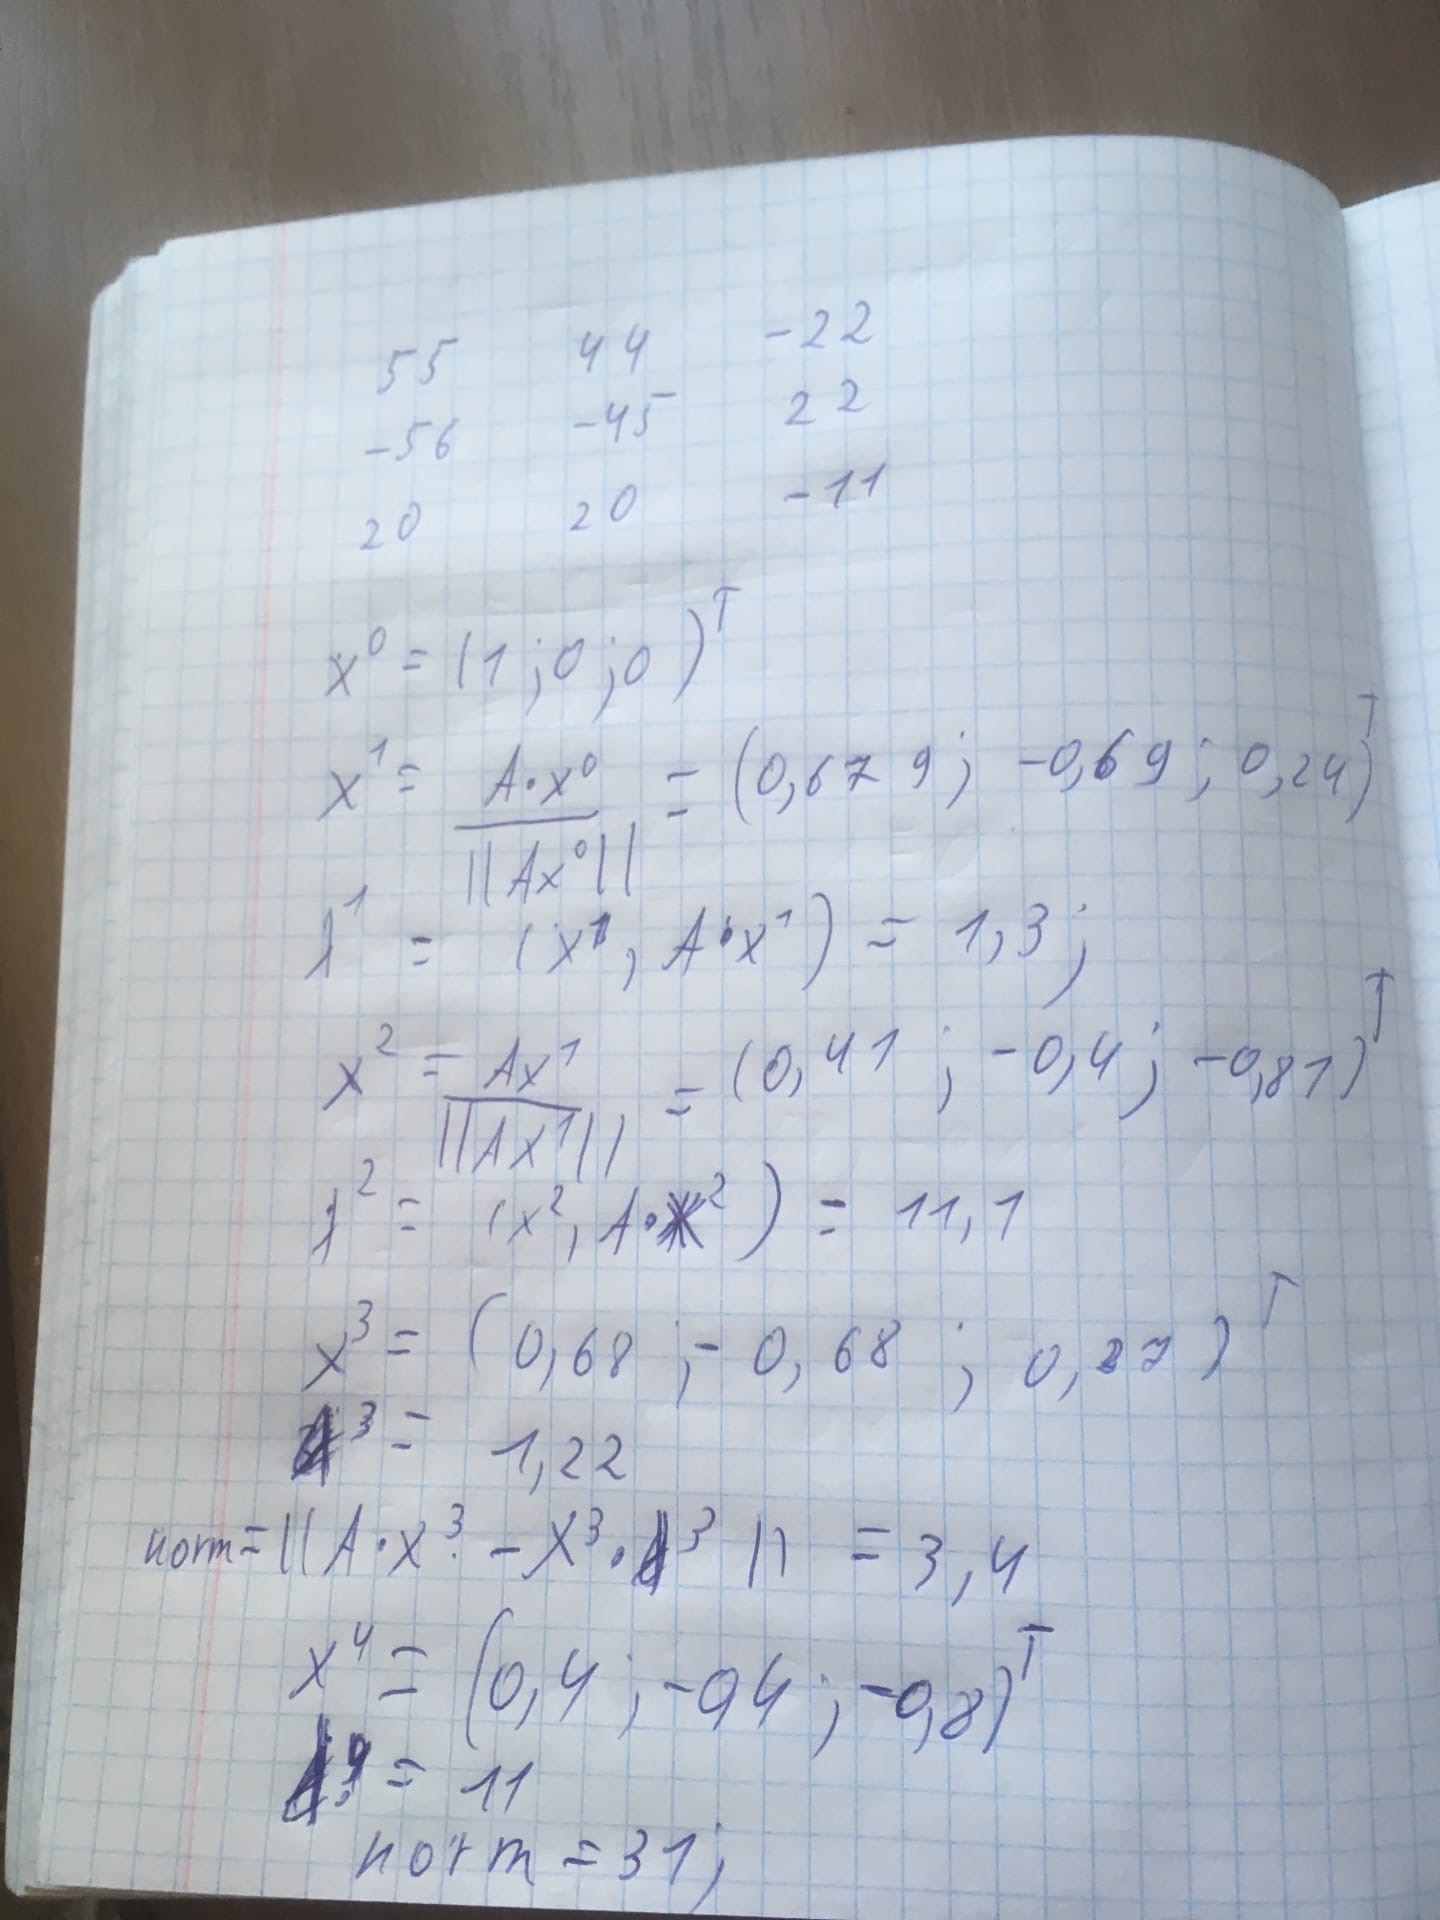 55 44 -22
-56 -45 22
20 20 -11
x⁰ = (1 ; 0 ; 0)ᵀ
x¹ = A·x⁰ / ||Ax⁰|| = (0,679 ; -0,69 ; 0,24)ᵀ
λ¹ = (x¹, A·x¹) = 1,3;
x² = Ax¹ / ||Ax¹|| = (0,41 ; -0,4 ; -0,81)ᵀ
λ² = (x², A·x²) = 11,1
x³ = (0,68 ; -0,68 ; 0,27)ᵀ
λ³ = 1,22
norm = ||A·x³ - x³·λ³|| = 3,4
x⁴ = (0,4 ; -0,4 ; -0,8)ᵀ
λ⁴ = 11
norm = 31;